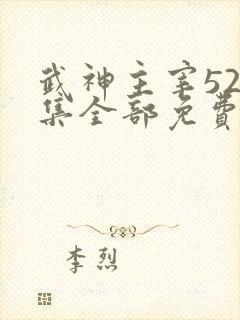 武神主宰52
集全部免费
李烈